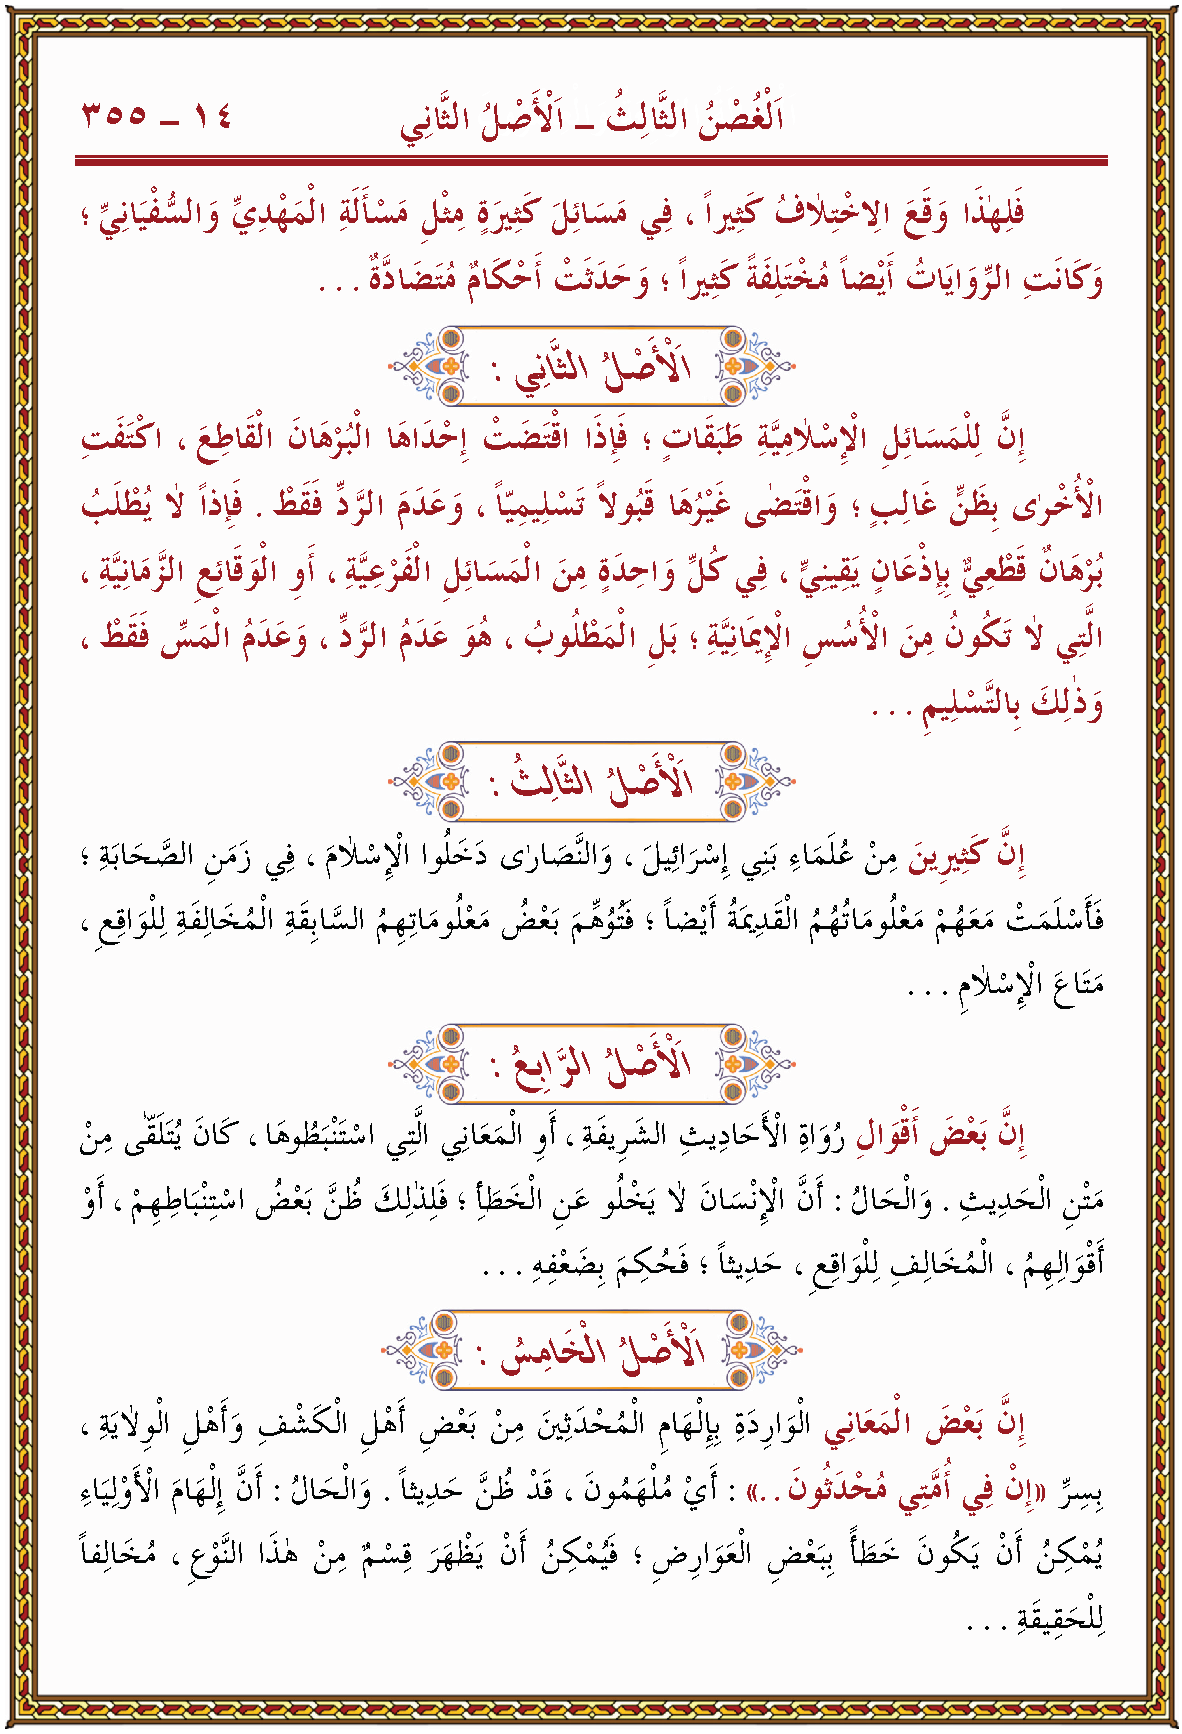 اَلْغُصْنُ الثَّالِثُ ـ اَلْأَصْلُ الثَّانِي ١٤ ـ ٣٥٥
فَلِهٰذَا وَقَعَ الِاخْتِلَافُ كَثِيراً ، فِي مَسَائِلَ كَثِيرَةٍ مِثْلِ مَسْأَلَةِ الْمَهْدِيِّ وَالسُّفْيَانِيِّ ؛
وَكَانَتِ الرِّوَايَاتُ أَيْضاً مُخْتَلِفَةً كَثِيراً ؛ وَحَدَثَتْ أَحْكَامٌ مُتَضَادَّةٌ . . .
اَلْأَصْلُ الثَّانِي :
إِنَّ لِلْمَسَائِلِ الْإِسْلَامِيَّةِ طَبَقَاتٍ ؛ فَإِذَا اقْتَضَتْ إِحْدَاهَا الْبُرْهَانَ الْقَاطِعَ ، اكْتَفَتِ
الْأُخْرٰى بِظَنٍّ غَالِبٍ ؛ وَاقْتَضٰى غَيْرُهَا قُبُولاً تَسْلِيمِيّاً ، وَعَدَمَ الرَّدِّ فَقَطْ . فَإِذاً لَا يُطْلَبُ
بُرْهَانٌ قَطْعِيٌّ بِإِذْعَانٍ يَقِينِيٍّ ، فِي كُلِّ وَاحِدَةٍ مِنَ الْمَسَائِلِ الْفَرْعِيَّةِ ، أَوِ الْوَقَائِعِ الزَّمَانِيَّةِ ،
الَّتِي لَا تَكُونُ مِنَ الْأُسُسِ الْإِيمَانِيَّةِ ؛ بَلِ الْمَطْلُوبُ ، هُوَ عَدَمُ الرَّدِّ ، وَعَدَمُ الْمَسِّ فَقَطْ ،
وَذٰلِكَ بِالتَّسْلِيمِ . . .
اَلْأَصْلُ الثَّالِثُ :
إِنَّ كَثِيرِينَ مِنْ عُلَمَاءِ بَنِي إِسْرَائِيلَ ، وَالنَّصَارٰى دَخَلُوا الْإِسْلَامَ ، فِي زَمَنِ الصَّحَابَةِ ؛
فَأَسْلَمَتْ مَعَهُمْ مَعْلُومَاتُهُمُ الْقَدِيمَةُ أَيْضاً ؛ فَتُوُهِّمَ بَعْضُ مَعْلُومَاتِهِمُ السَّابِقَةِ الْمُخَالِفَةِ لِلْوَاقِعِ ،
مَتَاعَ الْإِسْلَامِ . . .
اَلْأَصْلُ الرَّابِعُ :
إِنَّ بَعْضَ أَقْوَالِ رُوَاةِ الْأَحَادِيثِ الشَّرِيفَةِ ، أَوِ الْمَعَانِي الَّتِي اسْتَنْبَطُوهَا ، كَانَ يُتَلَقّٰى مِنْ
مَتْنِ الْحَدِيثِ . وَالْحَالُ : أَنَّ الْإِنْسَانَ لَا يَخْلُو عَنِ الْخَطَأِ ؛ فَلِذٰلِكَ ظُنَّ بَعْضُ اسْتِنْبَاطِهِمْ ، أَوْ
أَقْوَالِهِمُ ، الْمُخَالِفِ لِلْوَاقِعِ ، حَدِيثاً ؛ فَحُكِمَ بِضَعْفِهِ . . .
اَلْأَصْلُ الْخَامِسُ :
إِنَّ بَعْضَ الْمَعَانِي الْوَارِدَةِ بِإِلْهَامِ الْمُحْدَثِينَ مِنْ بَعْضِ أَهْلِ الْكَشْفِ وَأَهْلِ الْوِلَايَةِ ،
بِسِرِّ «إِنْ فِي أُمَّتِي مُحْدَثُونَ . .» : أَيْ مُلْهَمُونَ ، قَدْ ظُنَّ حَدِيثاً . وَالْحَالُ : أَنَّ إِلْهَامَ الْأَوْلِيَاءِ
يُمْكِنُ أَنْ يَكُونَ خَطَأً بِبَعْضِ الْعَوَارِضِ ؛ فَيُمْكِنُ أَنْ يَظْهَرَ قِسْمٌ مِنْ هٰذَا النَّوْعِ ، مُخَالِفاً
لِلْحَقِيقَةِ . . .